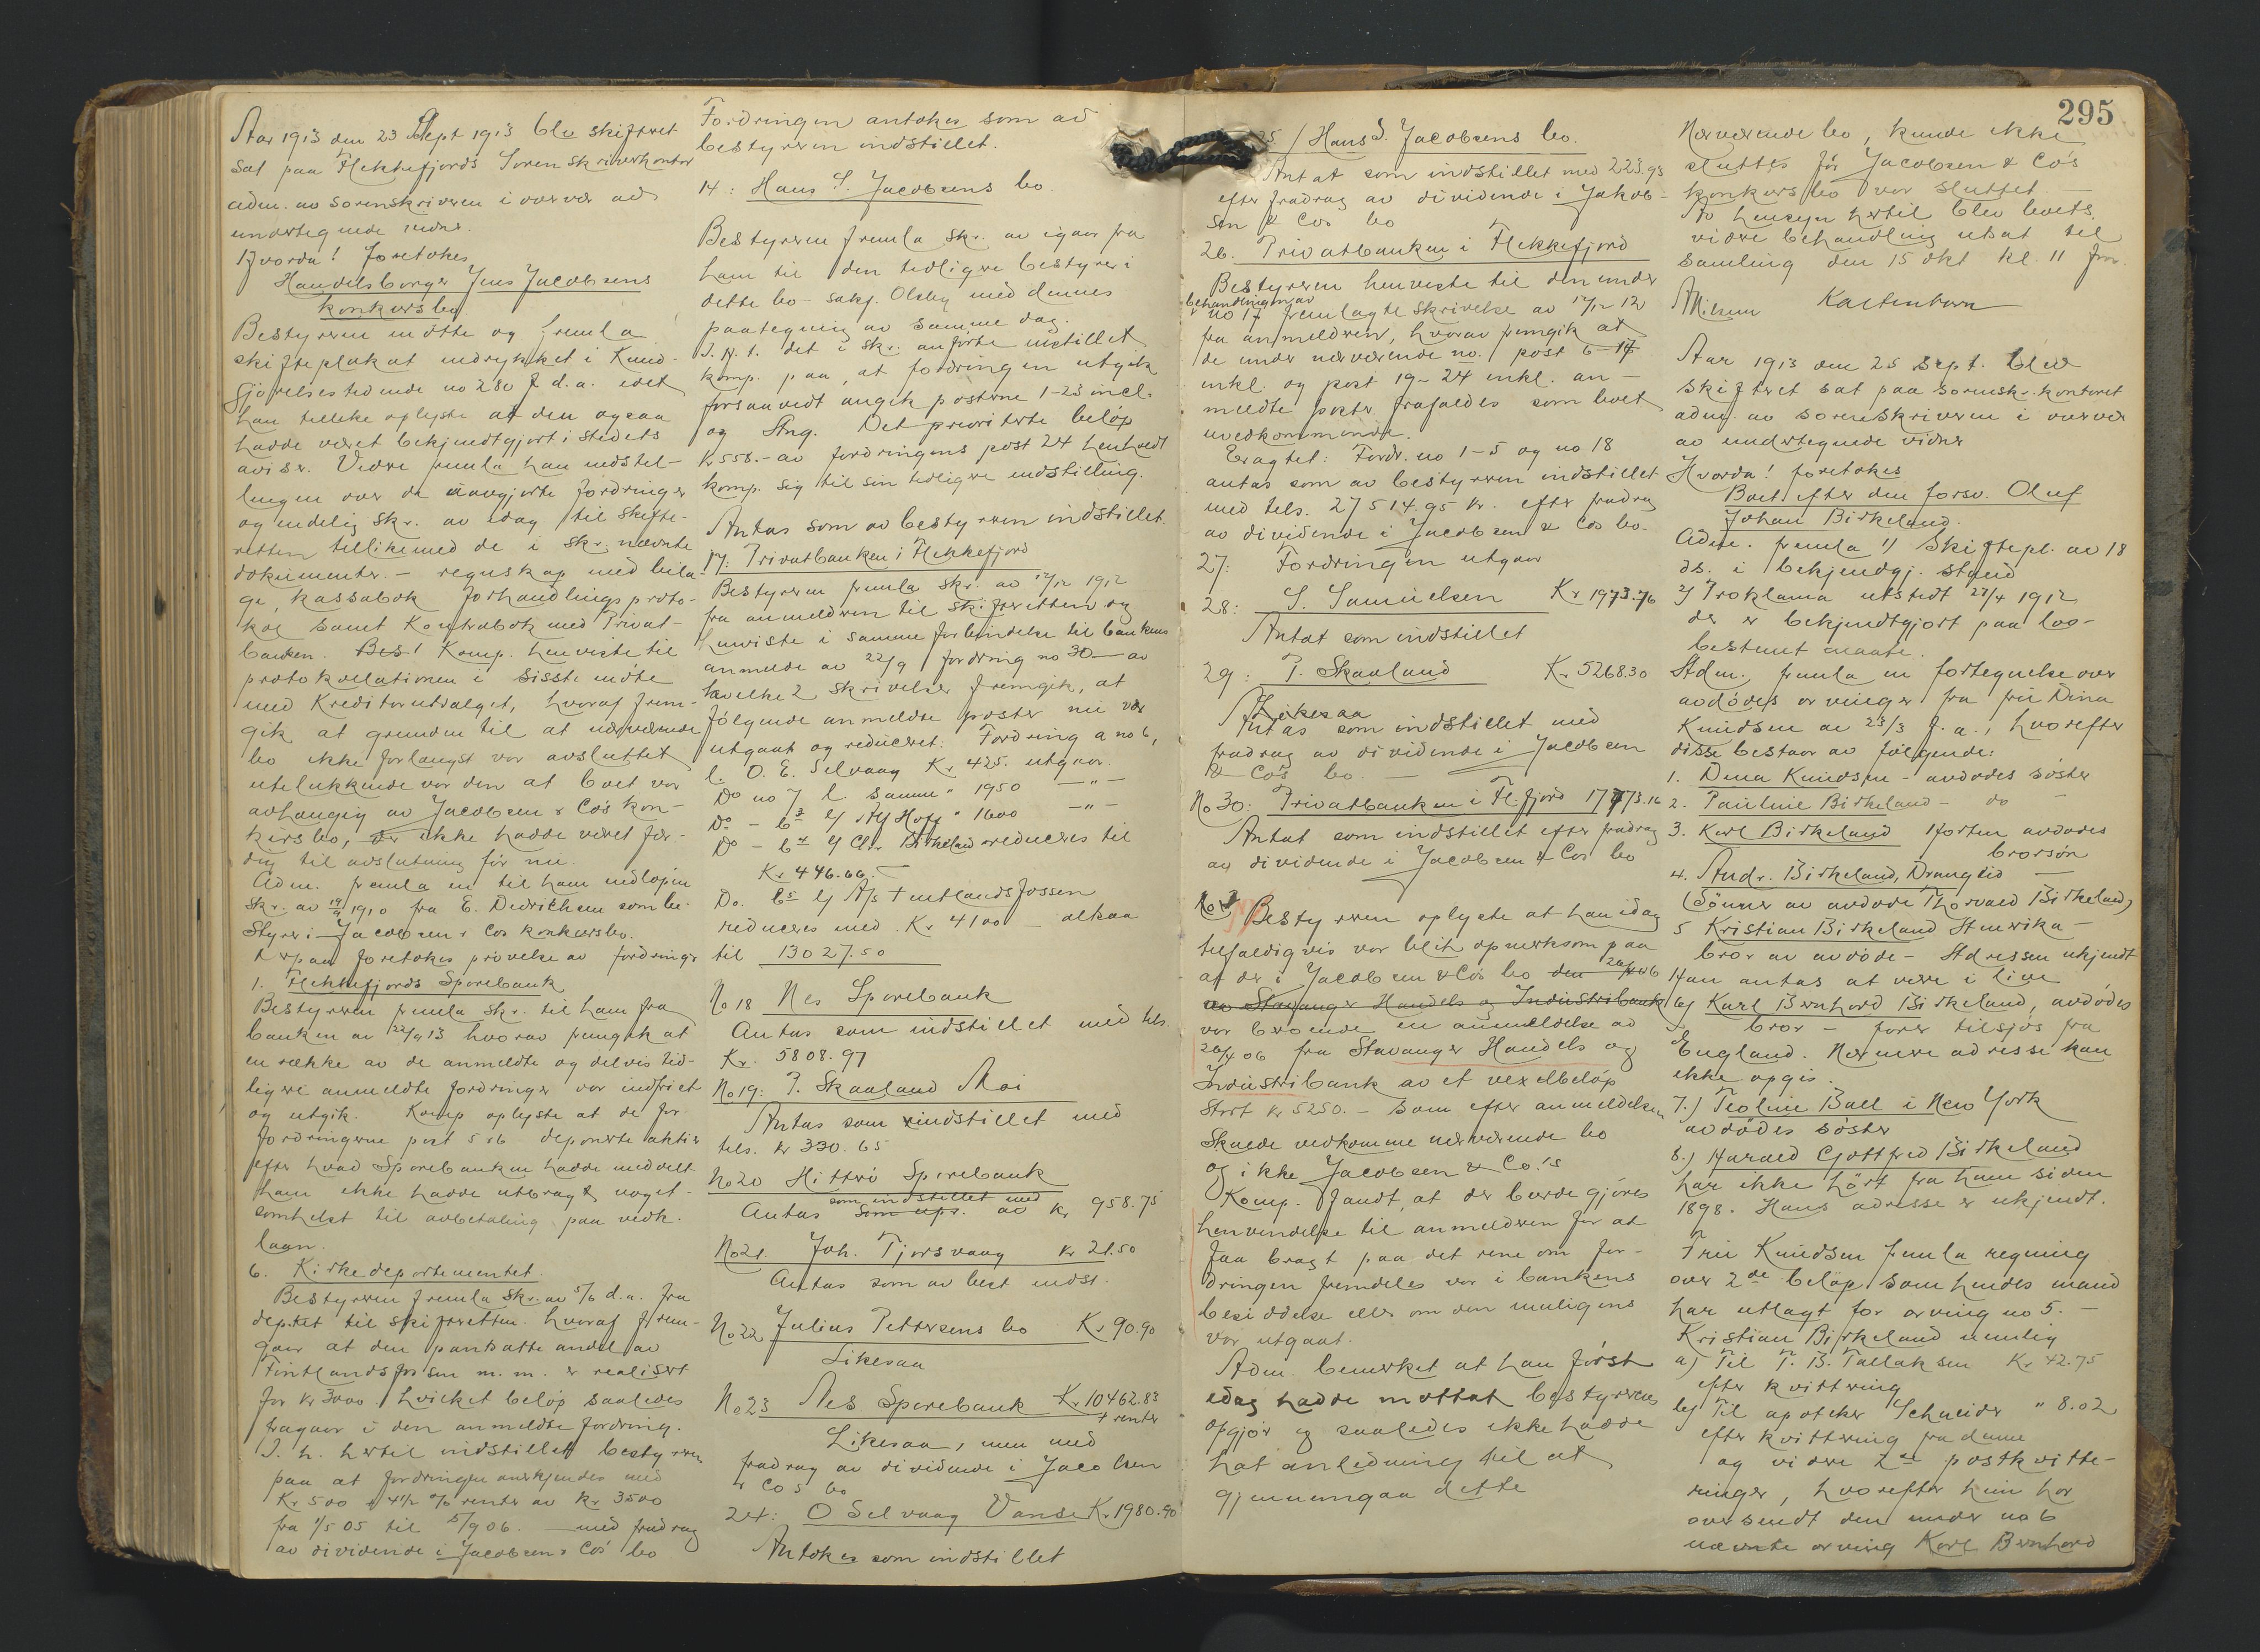 Aar 1913 den 23 Sept 1913 blev skiftet
sat paa Flekkefjords Sorenskriverkontor
adm. av sorenskriveren i overvær av
undertegnede vidner.
Hvorda! Foretokes
Handelsborger Jens Jacobsens
konkursbo
Bestyreren mötte og fremla
skifteplakat indrykket i Kund-
gjörelsestidende no 280 f d.a. idet
han tillike oplyste at den ogsaa
hadde været bekjendtgjort i stedets
aviser. Videre fremla han indstil-
lingen over de uavgjorte fordringer
og endelig skr. av idag til skifte-
retten tillikemed de i skr. nævnte
dokumenter. – regnskap med bila-
ge, kassabok forhandlingsproto-
kol samt Kontrabok med Privat-
banken. Best Komp. henviste til
protokollationen i sisste möte
med Kreditorutvalget, hvoraf frem-
gik at grunden til at nærværende
bo ikke forlengst var avsluttet
utelukkende var den at boet var
avhængig av Jacobsen & Co's kon-
kursbo, der ikke hadde været fær-
dig til avslutning för nu.
Adm. fremla en til ham indlöpen
skr. av 19/9 1910 fra E. Didrichsen som be-
styrer i Jacobsen & Cos konkursbo.
Derpaa foretokes prövelse av fordringer
1. Flekkefjords Sparebank
Bestyreren fremla skr. til ham fra
banken av 22/9 13 hvorav fremgik at
en række av de anmeldte og delvis tid-
ligere anmeldte fordringer var indfriet
og utgik. Komp oplyste at de for
fordringerne post 5 & 6 deponerte aktier
efter hvad Sparebanken hadde meddelt
ham ikke hadde utbragt noget-
somhelst til avbetaling paa vedk.
laan.
6. Kirkedepartementet.
Bestyreren fremla skr. av 5/6 d.a. fra
dep.tet til skifteretten. hvoraf frem-
gaar at den pantsatte andel av
Fintlandsfossen m.m. er realisert
for kr 3000 hvilket belöp saaledes
fragaar i den anmeldte fordring.
I. h. hertil indstillet bestyreren
paa at fordringen anerkjendes med
Kr 500 + 4½ % renter av kr. 3500
fra 1/5 05 til 5/9 06. – med fradrag
av dividende i Jacobsen & Co's bo
Fordringen antokes som av
bestyreren indstillet.
14: Hans S. Jacobsens bo.
Bestyreren fremla skr. av igaar fra
ham til den tidligere bestyrer i
dette bo – sakf. Olsby med dennes
paategning av samme dag.
I. H. t. det i skr. anförte instillet
komp. paa, at fordringen utgik
forsaavidt angik posterne 1-23 incl.
og Ang. Det prioriterte belöp
Kr 558.- av fordringens post 24 henholdt
komp. sig til sin tidligere indstilling.
Antas som av bestyreren indstillet.
17: Privatbanken i Flekkefjord
Bestyreren fremla skr. av 17/12 1912
fra anmelderen til skifteretten og
henviste i samme forbindelse til bankens
anmelde av 22/9 fordring no 30 – av
hvilke 2 skrivelser fremgik, at
fölgende anmeldte poster nu var
utgaat og reduceret: Fordring a no 6,
l. O. E. Selvaag Kr 425. utgaar.
Do no 7 l. samme " 1950 —"—
Do – b3 l/ Alf Hoff " 1600 —"—
Do – b4 l/ Chr Birkeland reduceres til
Kr 446.66. –
Do. b5 l/ A/s Fintlandsfossen
reduceres med Kr 4100 – altsaa
til 13027.50
No 18 Nes Sparebank
Antas som indstillet med tils.
Kr. 5808.97
No 19: P. Skaaland Moi
Antas som indstillet med
tils. kr 330.65
No 20 Hitterö Sparebank
som indstillet med
Antas som opr. av kr 958.75
No 21. Joh. Tjorsvaag kr 21.50
Antas som av best indst.
No 22 Julius Pettersens bo Kr 90.90
Likesaa
No 23 Nes Sparebank Kr 10462.83
+ renter
Likesaa, men med
fradrag av dividende i Jacobsen
& Co's bo
24: O Selvaag Vanse Kr 1980.90
Antokes som indstillet
295
25/ Hans S. Jacobsens bo.
Antat som indstillet med 223.93
efter fradrag av dividende i Jakob-
sen & Cos bo
26. Privatbanken i Flekkefjord
Bestyreren henviste til den under
behandlingen av
no 17 fremlagte skrivelse av 17/12 12
fra anmelderen, hvorav fremgik at
de under nærværende no. post 6-17
inkl. og post 19-24 inkl. an-
meldte poster frafaldes som boet
uvedkommende.
Eragtet: Fordr. no 1-5 og no 18
antas som av bestyreren indstillet
med tils. 27514.95 kr. efter fradrag
av dividende i Jacobsen & Co's bo.
27: Fordringen utgaar
28: S. Samuelsen Kr 1973.76
Antat som indstillet
29: P. Skaaland Kr. 5268.30
Likesaa
Antas som indstillet med
fradrag av dividende i Jacobsen
& Co's bo. –
No 30: Privatbanken i Fl.fjord 17773.16
Antat som indstillet efter fradrag
av dividende i Jacobsen & Co's bo
Bestyreren oplyste at han idag
tilfældigvis var blit opmerksom paa
at der i Jacobsen & Co's bo den 26/4 06
av Stavanger Handels og Industribank
var beroende en anmeldelse av
26/4 06 fra Stavanger Handels og
Industribank av et vexelbelöp
stort kr 5250.- som efter anmeldelsen
skulde vedkomme nærværende bo
og ikke Jacobsen & Co.'s
Komp. fandt, at der burde gjöres
henvendelse til anmelderen for at
faa bragt paa det rene om for-
dringen fremdeles var i bankens
besiddelse eller om den muligens
var utgaat.
Adm. bemerket at han först
idag hadde mottat bestyrerens
opgjör og saaledes ikke hadde
hat anledning til at
gjennemgaa dette
Nærværende bo, kunde ikke
sluttes för Jacobsen & Co's
konkursbo var sluttet –
Av hensyn hertil blev boets
videre behandling utsat til
samling den 15 okt kl. 11 fm.
Kaltenborn
Aar 1913 den 25 Sept. blev
skiftet sat paa sorenskr. kontoret
adm. av sorenskriveren i overvær
av undertegnede vidner
Hvorda! foretokes
Boet efter den forsv. Oluf
Johan Birkeland.
Adm. fremla 1/ Skiftepl. av 18
ds. i bekjendgj. stand
2/ Proklama utstedt 27/4 1912
der er bekjendtgjort paa lov-
bestemt maate.
Adm. fremla en fortegnelse over
avdödes arvinger fra fru Dina
Knudsen av 23/3 f.a., hvorefter
disse bestaar av fölgende:
1. Dina Knudsen – avdödes söster
2. Pauline Birkeland – do –
3. Karl Birkeland Horten avdödes
brorsön
4. Andr. Birkeland, Drangeid —
(Sönner av avdöde Thorvald Birkeland)
5 Kristian Birkeland Amerika –
bror av avdöde – Adressen ukjendt
Han antas at være i live
6/ Karl Bernhard Birkeland, avdödes
bror – farer tilsjös fra
England. Nærmere adresse kan
ikke opgis.
7.) Teoline Ball i New York
avdödes söster
8.) Harald Gottfred Birkeland
har ikke hört fra ham siden
1898. Hans adresse er ukjendt.
Fru Knudsen fremla regning
over 2de belöp som hendes mand
har utlagt for arving no 5. –
Kristian Birkeland nemlig
a) Til T. B. Tallaksen Kr 42.75
efter kvittering
b) Til apoteker Schneider " 8.02
efter kvittering fra denne
og videre 2de postkvitte-
ringer, hvorefter hun har
oversendt den under no 6
nævnte arving Karl Bernhard